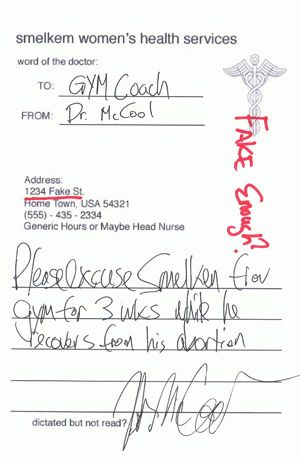 smelkem women's health services
word of the doctor:
TO: GYM Coach
FROM: Dr. McCool
FAKE Enough?
Address:
1234 Fake St.
Home Town, USA 54321
(555) - 435 - 2334
Generic Hours or Maybe Head Nurse
Please excuse Smelken from
gym for 3 wks while he
recovers from his abortion
dictated but not read?